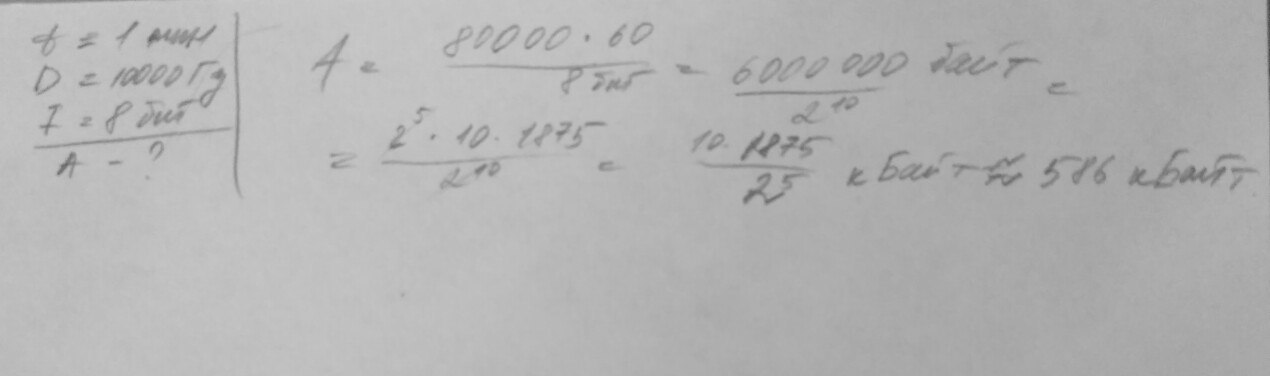 t = 1 мин
D = 10000 Гц
I = 8 бит
A - ?
A = 80000 · 60 / 8 бит = 6000000 байт / 2^10 =
= 2^5 · 10 · 1875 / 2^10 = 10 · 1875 / 2^5 кБайт ≈ 586 кБайт